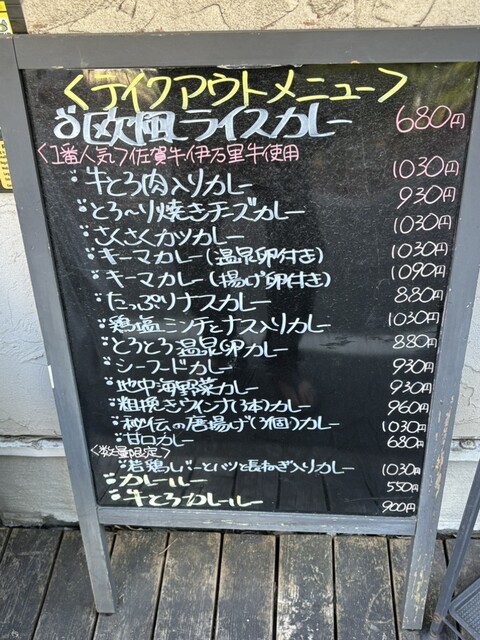 <テイクアウトメニュー>
欧風ライスカレー 680円
<1番人気>佐賀牛伊万里牛使用
牛とろ肉入りカレー 1030円
とろ〜り焼きチーズカレー 930円
さくさくカツカレー 1030円
キーマカレー(温泉卵付き) 1030円
キーマカレー(揚げ卵付き) 1090円
たっぷりナスカレー 880円
鶏塩ミンチとナス入りカレー 1030円
とろとろ温泉卵カレー 880円
シーフードカレー 930円
地中海野菜カレー 930円
粗挽きウインナ(3本)カレー 960円
秘伝の唐揚げ(3個)カレー 1030円
甘口カレー 680円
<数量限定>
若鶏レバーとハツと長ねぎ入りカレー 1030円
カレールー 550円
牛とろカレールー 900円